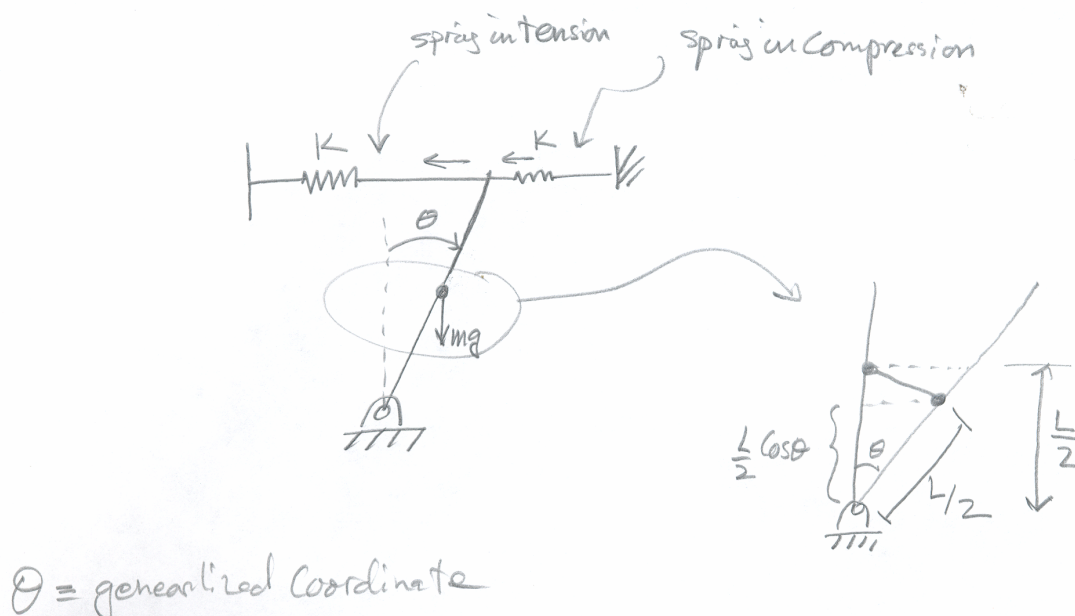 spring in tension
spring in Compression
K
K
θ
mg
L/2 Cosθ
θ
L/2
L/2
θ ≡ genearlized Coordinate